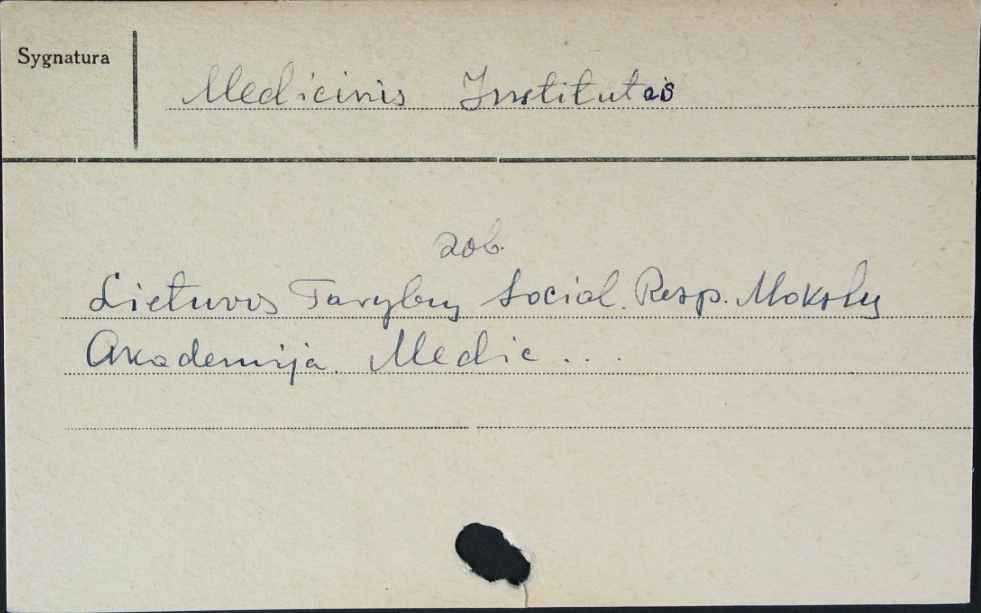 Sygnatura
Medicinis Institutas
zob.
Lietuvos Tarybų Social. Resp. Mokslų
Akademija. Medic...